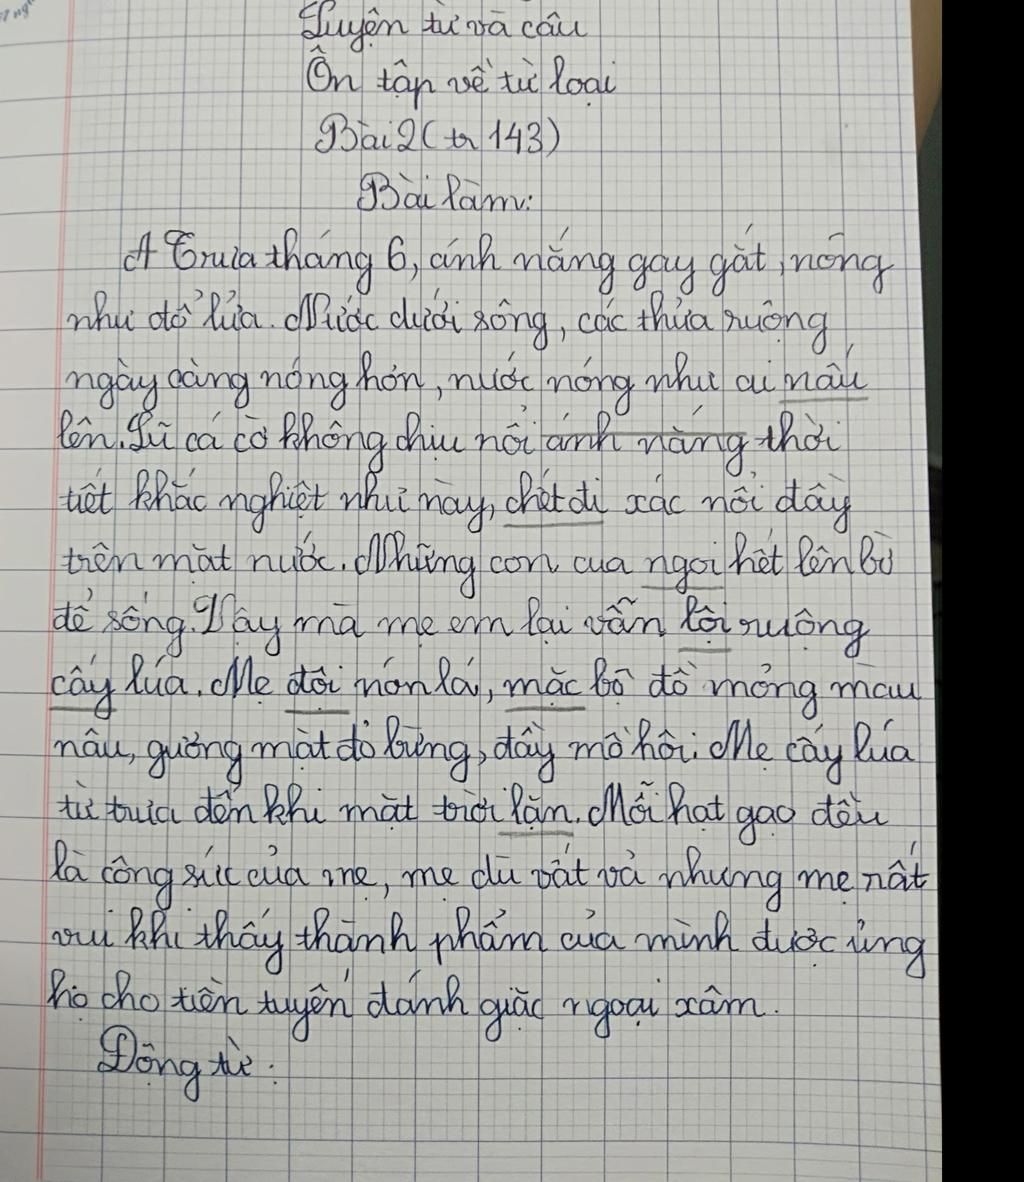 Luyện từ và câu
Ôn tập về từ loại
Bài 2 (tr 143)
Bài làm:
A Trưa tháng 6, ánh nắng gay gắt, nóng
như đổ lửa. Nước dưới sông, các thửa ruộng
ngày càng nóng hơn, nước nóng như ai nấu
lên. Lũ cá cờ không chịu nổi ánh nắng thời
tiết khắc nghiệt như này, chết đi xác nổi đầy
trên mặt nước. Những con cua ngoi hết lên bờ
để sống. Vậy mà mẹ em lại vẫn lội ruộng
cấy lúa. Mẹ đội nón lá, mặc bộ đồ mỏng màu
nâu, gương mặt đỏ bừng, đầy mồ hôi. Mẹ cấy lúa
từ trưa đến khi mặt trời lặn. Mỗi hạt gạo đều
là công sức của mẹ, mẹ dù vất vả nhưng mẹ rất
vui khi thấy thành phẩm của mình được ủng
hộ cho tiền tuyến đánh giặc ngoại xâm.
Động từ: